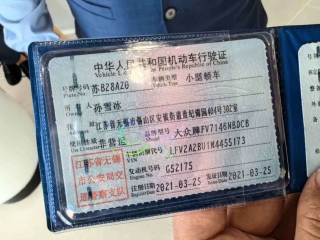 中华人民共和国机动车行驶证
Vehicle License of the People's Republic of China
号牌号码 苏B28A20 车辆类型 小型轿车
Plate No. Vehicle Type
所有人 孙雪冰
Owner
住址 江苏省无锡市锡山区安镇街道 404号302室
使用性质 非营运 品牌型号 大众牌FV7146NBDCB
Use Character Model
江苏省无锡市公安局交通警察支队
车辆识别代号 LFV2A2BU1M4455173
VIN
发动机号码 G52175
Engine No.
注册日期 2021-03-25 发证日期 2021-03-25
Register Date Issue Date